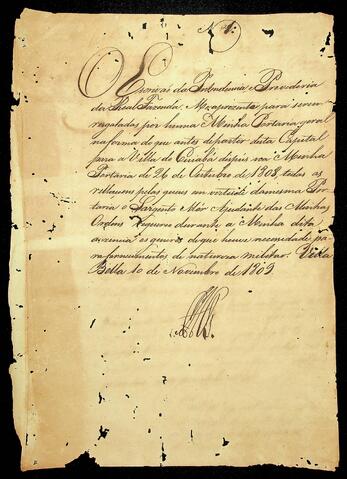 N. 1.
O Escrivão da Intendencia e Provedoria
da Real Fazenda Me aprezente para serem
regaladas por huma Minha Portaria geral
na forma do que antes de partir desta Capital
para a Villa do Cuiabá depus na Minha
Portaria de 26 de Outubro de 1808, todas as
relaçoens pelas quaes em virtude da mesma Por
taria o Sargento Mór Ajudante das Minhas
Ordens requereo durante a Minha dita
auzencia os generos de que houve necessidade pa
ra fornecimentos de natureza militar. Villa
Bella 10 de Novembro de 1809